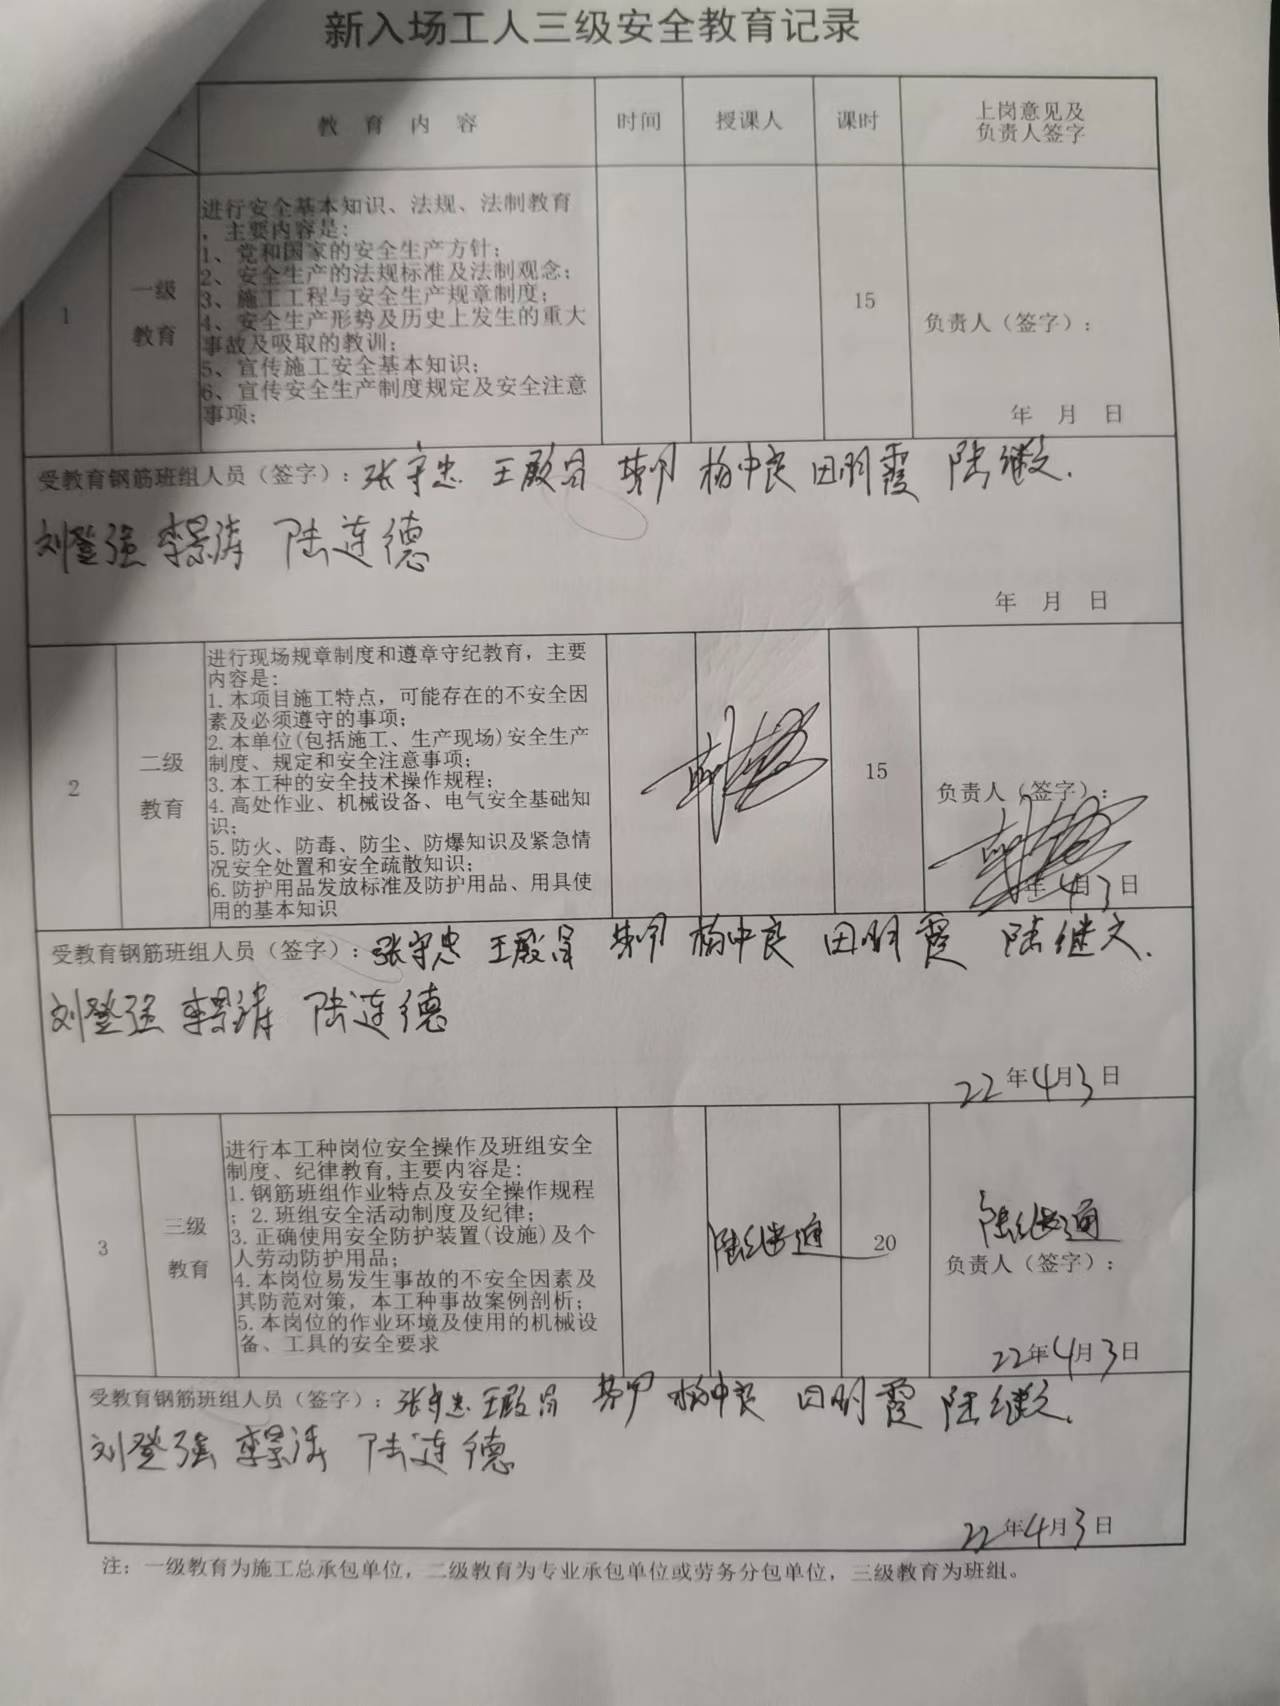 新入场工人三级安全教育记录
教 育 内 容 时间 授课人 课时 上岗意见及
负责人签字
1 一级
教育
进行安全基本知识、法规、法制教育
，主要内容是:
1、党和国家的安全生产方针；
2、安全生产的法规标准及法制观念；
3、施工工程与安全生产规章制度；
4、安全生产形势及历史上发生的重大
事故及吸取的教训；
5、宣传施工安全基本知识；
6、宣传安全生产制度规定及安全注意
事项；
15
负责人（签字）：
年 月 日
受教育钢筋班组人员（签字）：张守忠 王殿昌 杨中良 田明霞 陆继文.
刘登强 李景涛 陆连德
年 月 日
2 二级
教育
进行现场规章制度和遵章守纪教育，主要
内容是:
1.本项目施工特点，可能存在的不安全因
素及必须遵守的事项；
2.本单位(包括施工、生产现场)安全生产
制度、规定和安全注意事项；
3.本工种的安全技术操作规程；
4.高处作业、机械设备、电气安全基础知
识；
5.防火、防毒、防尘、防爆知识及紧急情
况安全处置和安全疏散知识；
6.防护用品发放标准及防护用品、用具使
用的基本知识
15
负责人（签字）：
年4月3日
受教育钢筋班组人员（签字）：张守忠 王殿昌 杨中良 田明霞 陆继文.
刘登强 李景涛 陆连德
22年4月3日
3 三级
教育
进行本工种岗位安全操作及班组安全
制度、纪律教育,主要内容是:
1.钢筋班组作业特点及安全操作规程
；2.班组安全活动制度及纪律；
3.正确使用安全防护装置(设施)及个
人劳动防护用品；
4.本岗位易发生事故的不安全因素及
其防范对策，本工种事故案例剖析；
5.本岗位的作业环境及使用的机械设
备、工具的安全要求
陆继通
20
陆继通
负责人（签字）：
22年4月3日
受教育钢筋班组人员（签字）：张守忠 王殿昌 杨中良 田明霞 陆继文.
刘登强 李景涛 陆连德
22年4月3日
注：一级教育为施工总承包单位，二级教育为专业承包单位或劳务分包单位，三级教育为班组。